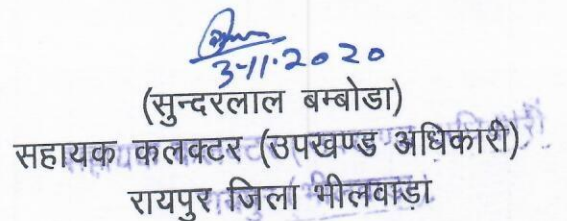 3-11-2020
(सुन्दरलाल बम्बोडा)
सहायक कलक्टर (उपखण्ड अधिकारी)
रायपुर जिला भीलवाड़ा